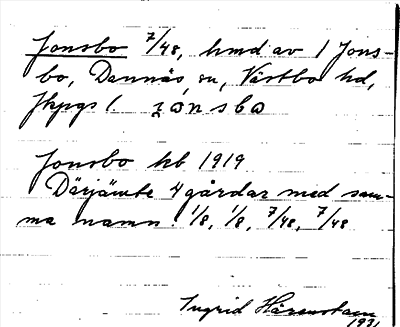 Jonsbo 7/48, hmd av 1 Jons-
bo, Dannäs sn, Västbo hd,
Jkpgs l. jo̱nsbo
Jonsbo kb 1919
Därjämte 4 gårdar med sam-
ma namn. 1/8, 1/8, 7/48, 7/48
Ingrid Härenstam
1931